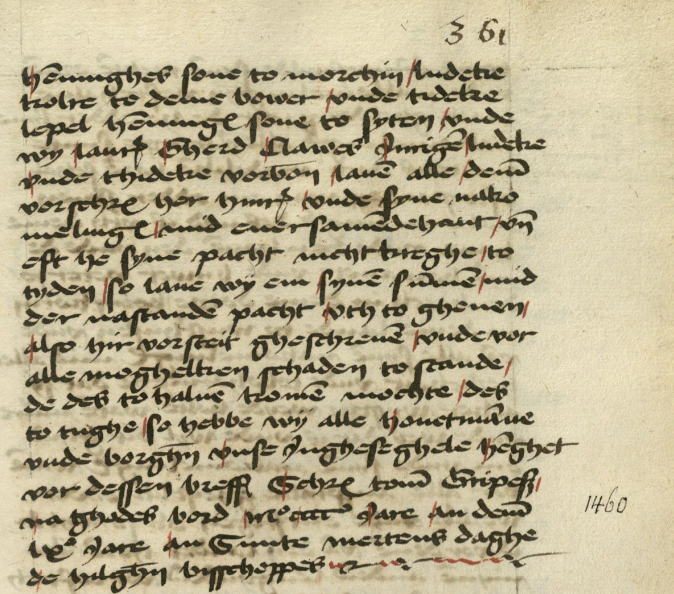 361
hēninghes sone to morchin / ludeke
krolre to deme bower / vnde tideke
lepel hēningꝭ sone to syten / vnde
wy / laur Gherd Clawes Jurigē / ludeke
vnde thideke vorbon / lauē alle / dem̄
vorschrꝭ her hinr / vnde syne nako
melingꝭ / mid ener samēdehant / vn̄
eft he syne pacht nicht kreghe / to
tyden / so laue wy em / synē sūmēn / mid
der nastandē pacht / vth to gheuen /
also hir vorsteit gheschreuē / vnde vor
alle mogheltken schaden to stande /
de des to haluē kromē mochte / des
to tughe / so hebbe wy alle houetmāne
vnde borghn̄ vnse Jngheseghele hēghet
vor dessen breff Schrꝭ tom̄ Gripesꝭ /
na ghodes bord mºccccº Jare an dem̄
lxº Jare an Sunte mertens daghe
de hilghn̄ bisscheppes
1460